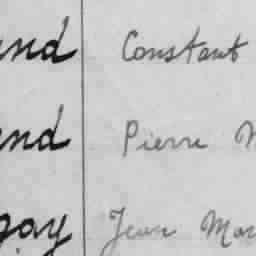 and Constant
end Pierre
gay Jean Mar